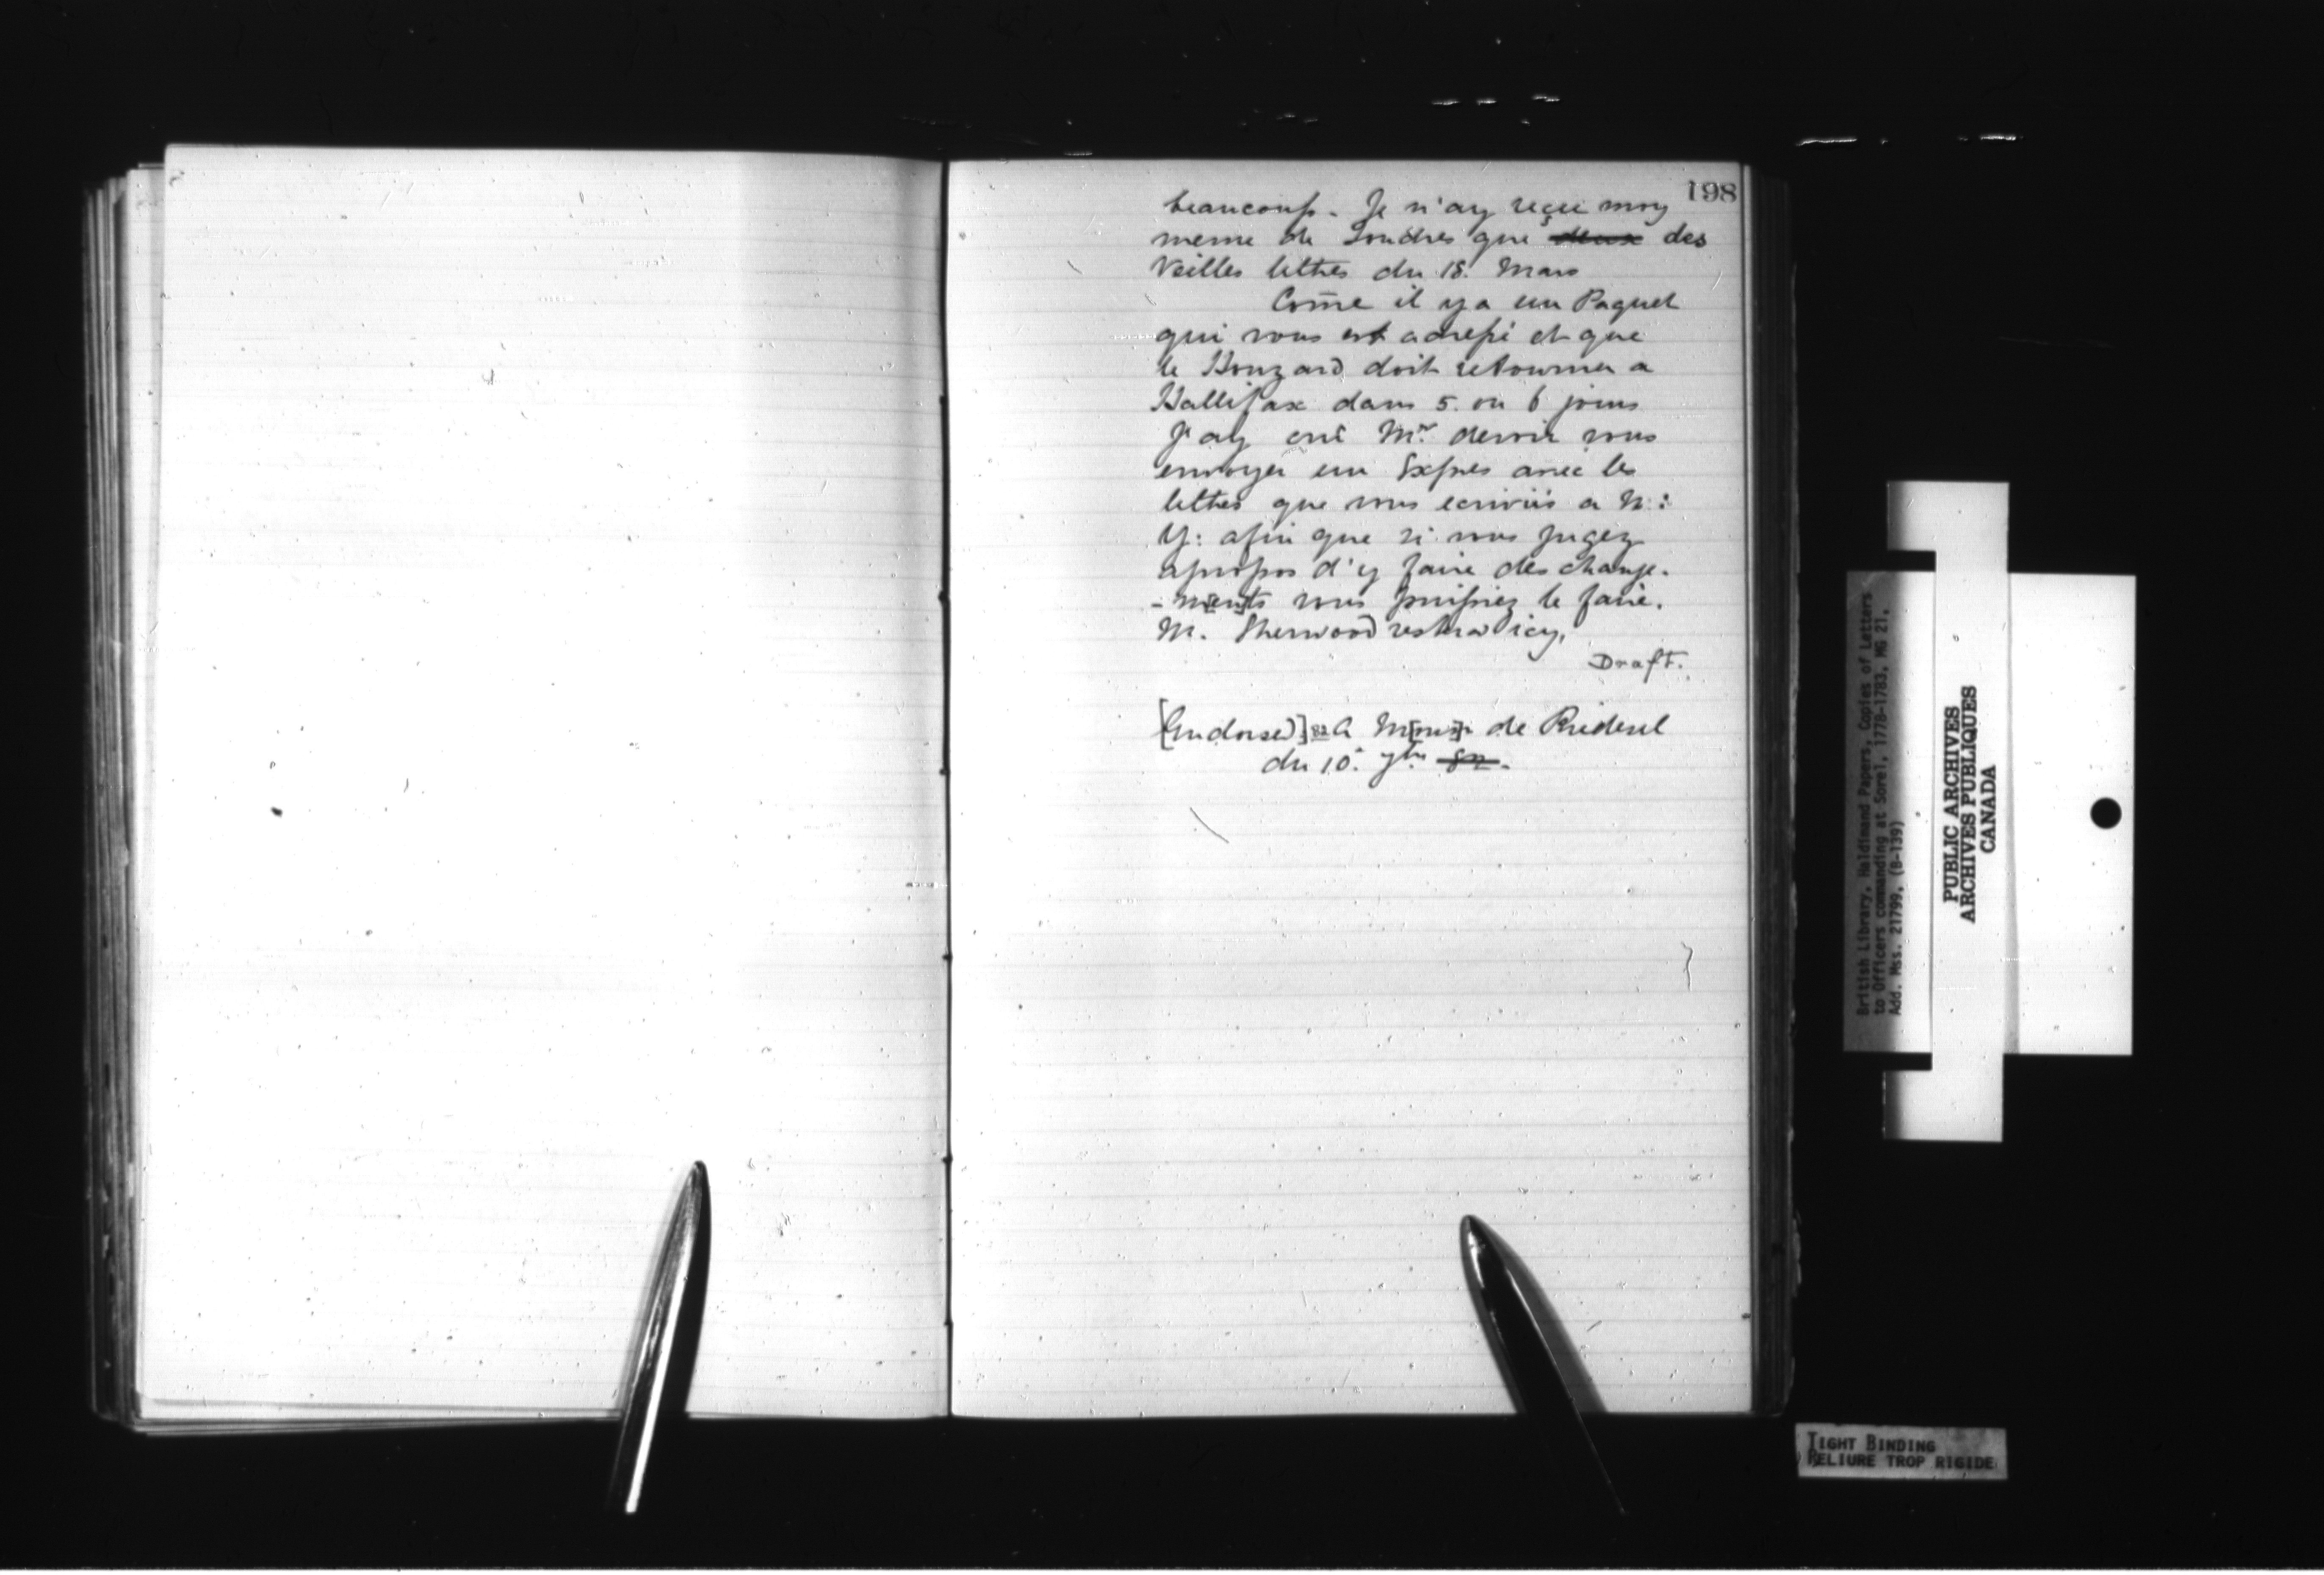 198
beaucoup. Je n'ay reçeu moy
meme de Londres que ~~deux~~ des
Veilles lettres du 18. Mars
Com̃e il y a un Paquet
qui vous est adressé et que
le Houzard doit retourner a
Hallifax dans 5. ou 6 jours
J'ay crû Mr. devoir vous
envoyer un Expres avec les
lettres que vous ecriviés a N:
Y: afin que si vous jugez
apropos d'y faire des change-
-m[en]ts vous puissiez le faire.
M. Sherwood restera icy.
Draft.
[Endorsed] 82 A M[onsieu]r de Riedesel
du 10. 7bre ~~82~~.
British Library, Haldimand Papers, Copies of Letters
to Officers commanding at Sorel, 1778-1783, MG 21,
Add. Mss. 21799, (B-139)
PUBLIC ARCHIVES
ARCHIVES PUBLIQUES
CANADA
TIGHT BINDING
RELIURE TROP RIGIDE